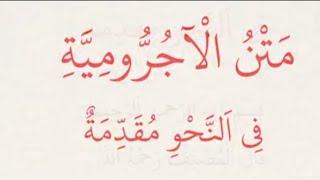 مَتْنُ الْآجُرُّومِيَّةِ
فِى اَلنَّحْوِ مُقَدِّمَةٌ